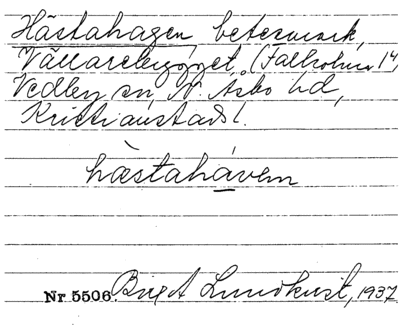 Hästahagen betesmark,
Vällarebygget (Fallholma 1⁴)
Vedby sn N. Åsbo hd,
Kristianstads l.
hæstahávem
Nr 5506. Birgit Lundkvist, 1937